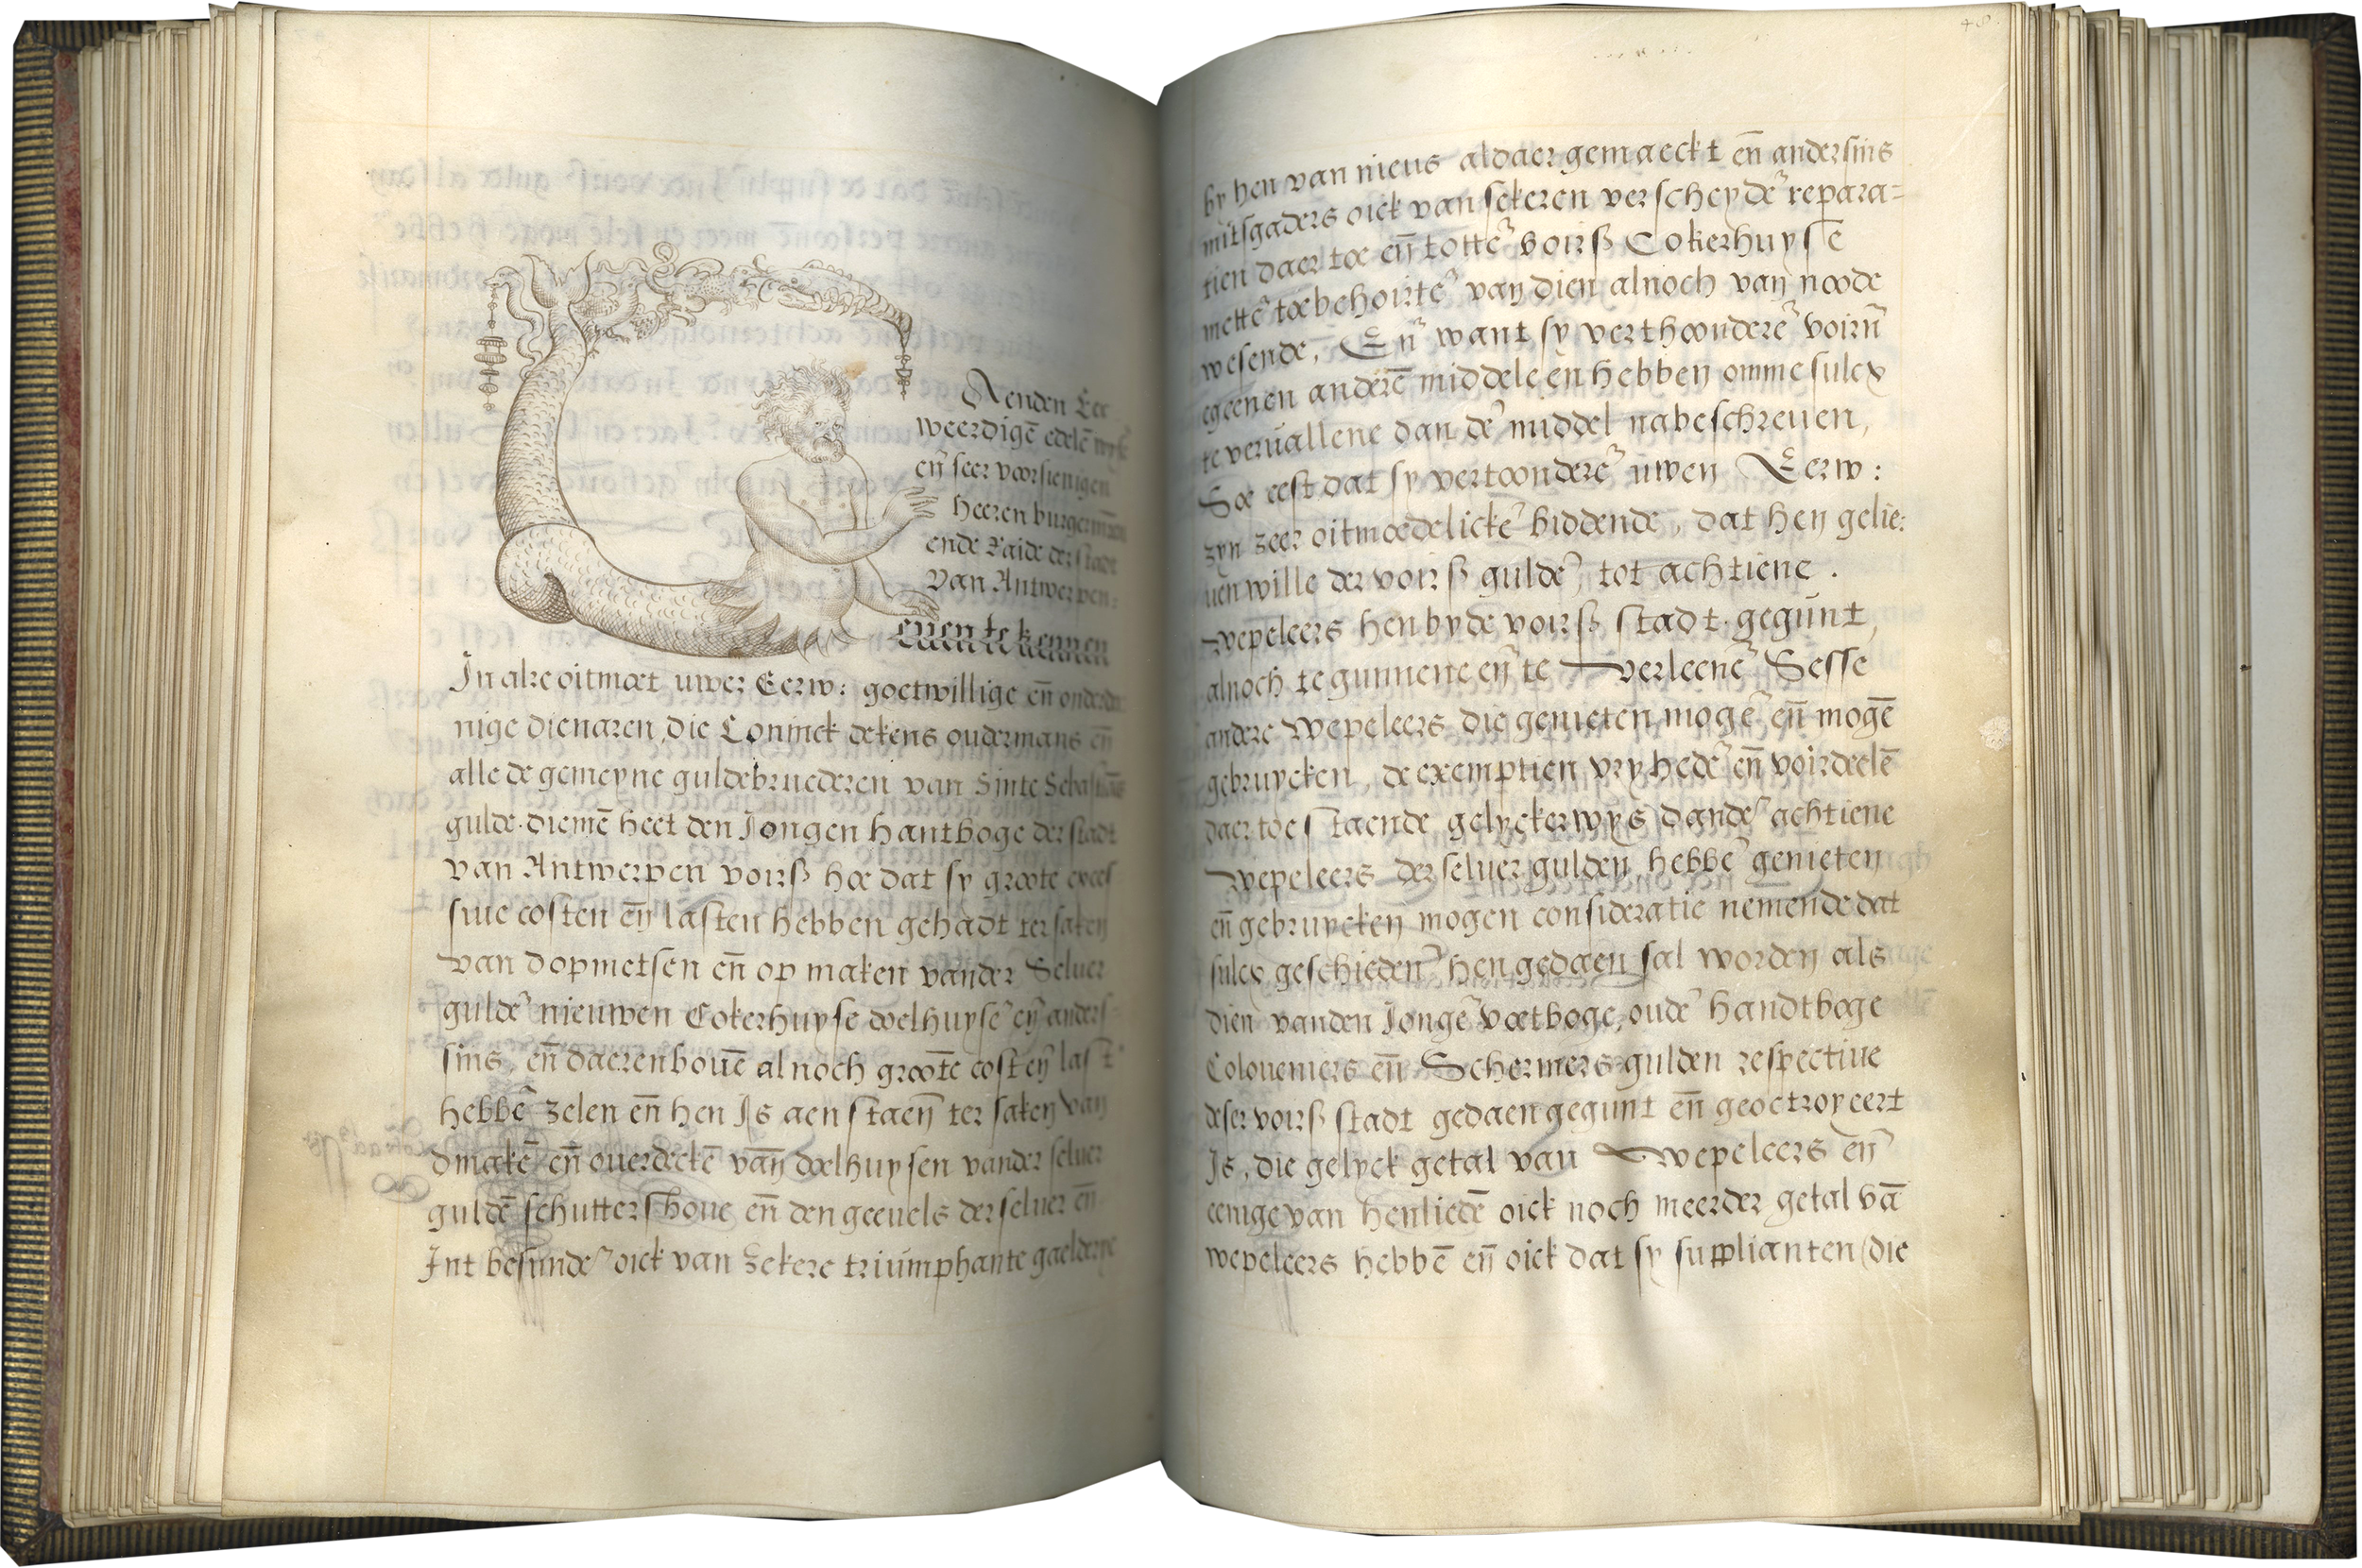 Aenden Eer
weerdigē edelē wysē
eñ seer voorsienigen
heeren burgermrē
ende Raide der stadt
van Antwerpen:
euen te kennen
In alre oitmoet uwer Eerw: goetwillige eñ onderda
nige dienaren die Coninck dekens oudermans eñ
alle de gemeyne guldebruederen van Sinte Sebastiaēs
gulde diemē heet den Jongen hantboge der stadt
van Antwerpen voirß hoe dat sy groote exces
siue costen eñ lasten hebben gehadt ter saken
van dopmetsen eñ op maken vander Seluer
guldē nieuwen Cokerhuyse doelhuysē eñ anders
sins, eñ daerenbouē alnoch groote cost eñ last
hebbē zelen eñ hen Is aen staeñ ter saken van
dmakē eñ ouerdeckē vañ doelhuysen vander seluer
guldē schuttershoue eñ den geeuels der seluer eñ
Int besundē oick van zekere triumphante gaelderye
48.
by hen van nieus aldaer gemaeckt eñ andersins
mitsgaders oick van sekeren verscheydē repara=
tien daer toe eñ tottē voirß Cokerhuysē
mettē toebehoirtē van dien alnoch van noode
wesende, Eñ want sy verthoonderē voirñ
egeenen anderē middeleen hebben omme sulcx
te veruallene dan dē middel nabeschreuen,
Soe eest dat sy vertoonderē uwen Eerw:
zyn zeer oitmoedelickē biddende, dat hen gelie:
uen wille der voirß guldē, tot achtiene.
wepeleers hen by dē voirß stadt gegunt,
alnoch te gunnene eñ te verleenē Sesse
andere wepeleers die genieten mogē eñ mogē
gebruycken, de exemptien vryhedē eñ voirdeelē
daer toe staende gelyckerwys dandē achtiene
wepeleers der seluer gulden hebbē genieten
eñ gebruycken mogen consideratie nemende dat
sulcx geschiedeñ hen gedaen sal worden als
dien vanden Jongē voetboge, oudē handtboge
Coloueniers eñ Schermers gulden respectiue
deser voirß stadt gedaen gegunt eñ geoctroyeert
Is, die gelyck getal van wepeleers eñ
eenige van henliedē oick noch meerder getal vā
wepeleers hebbē eñ oick dat sy supplianten (die